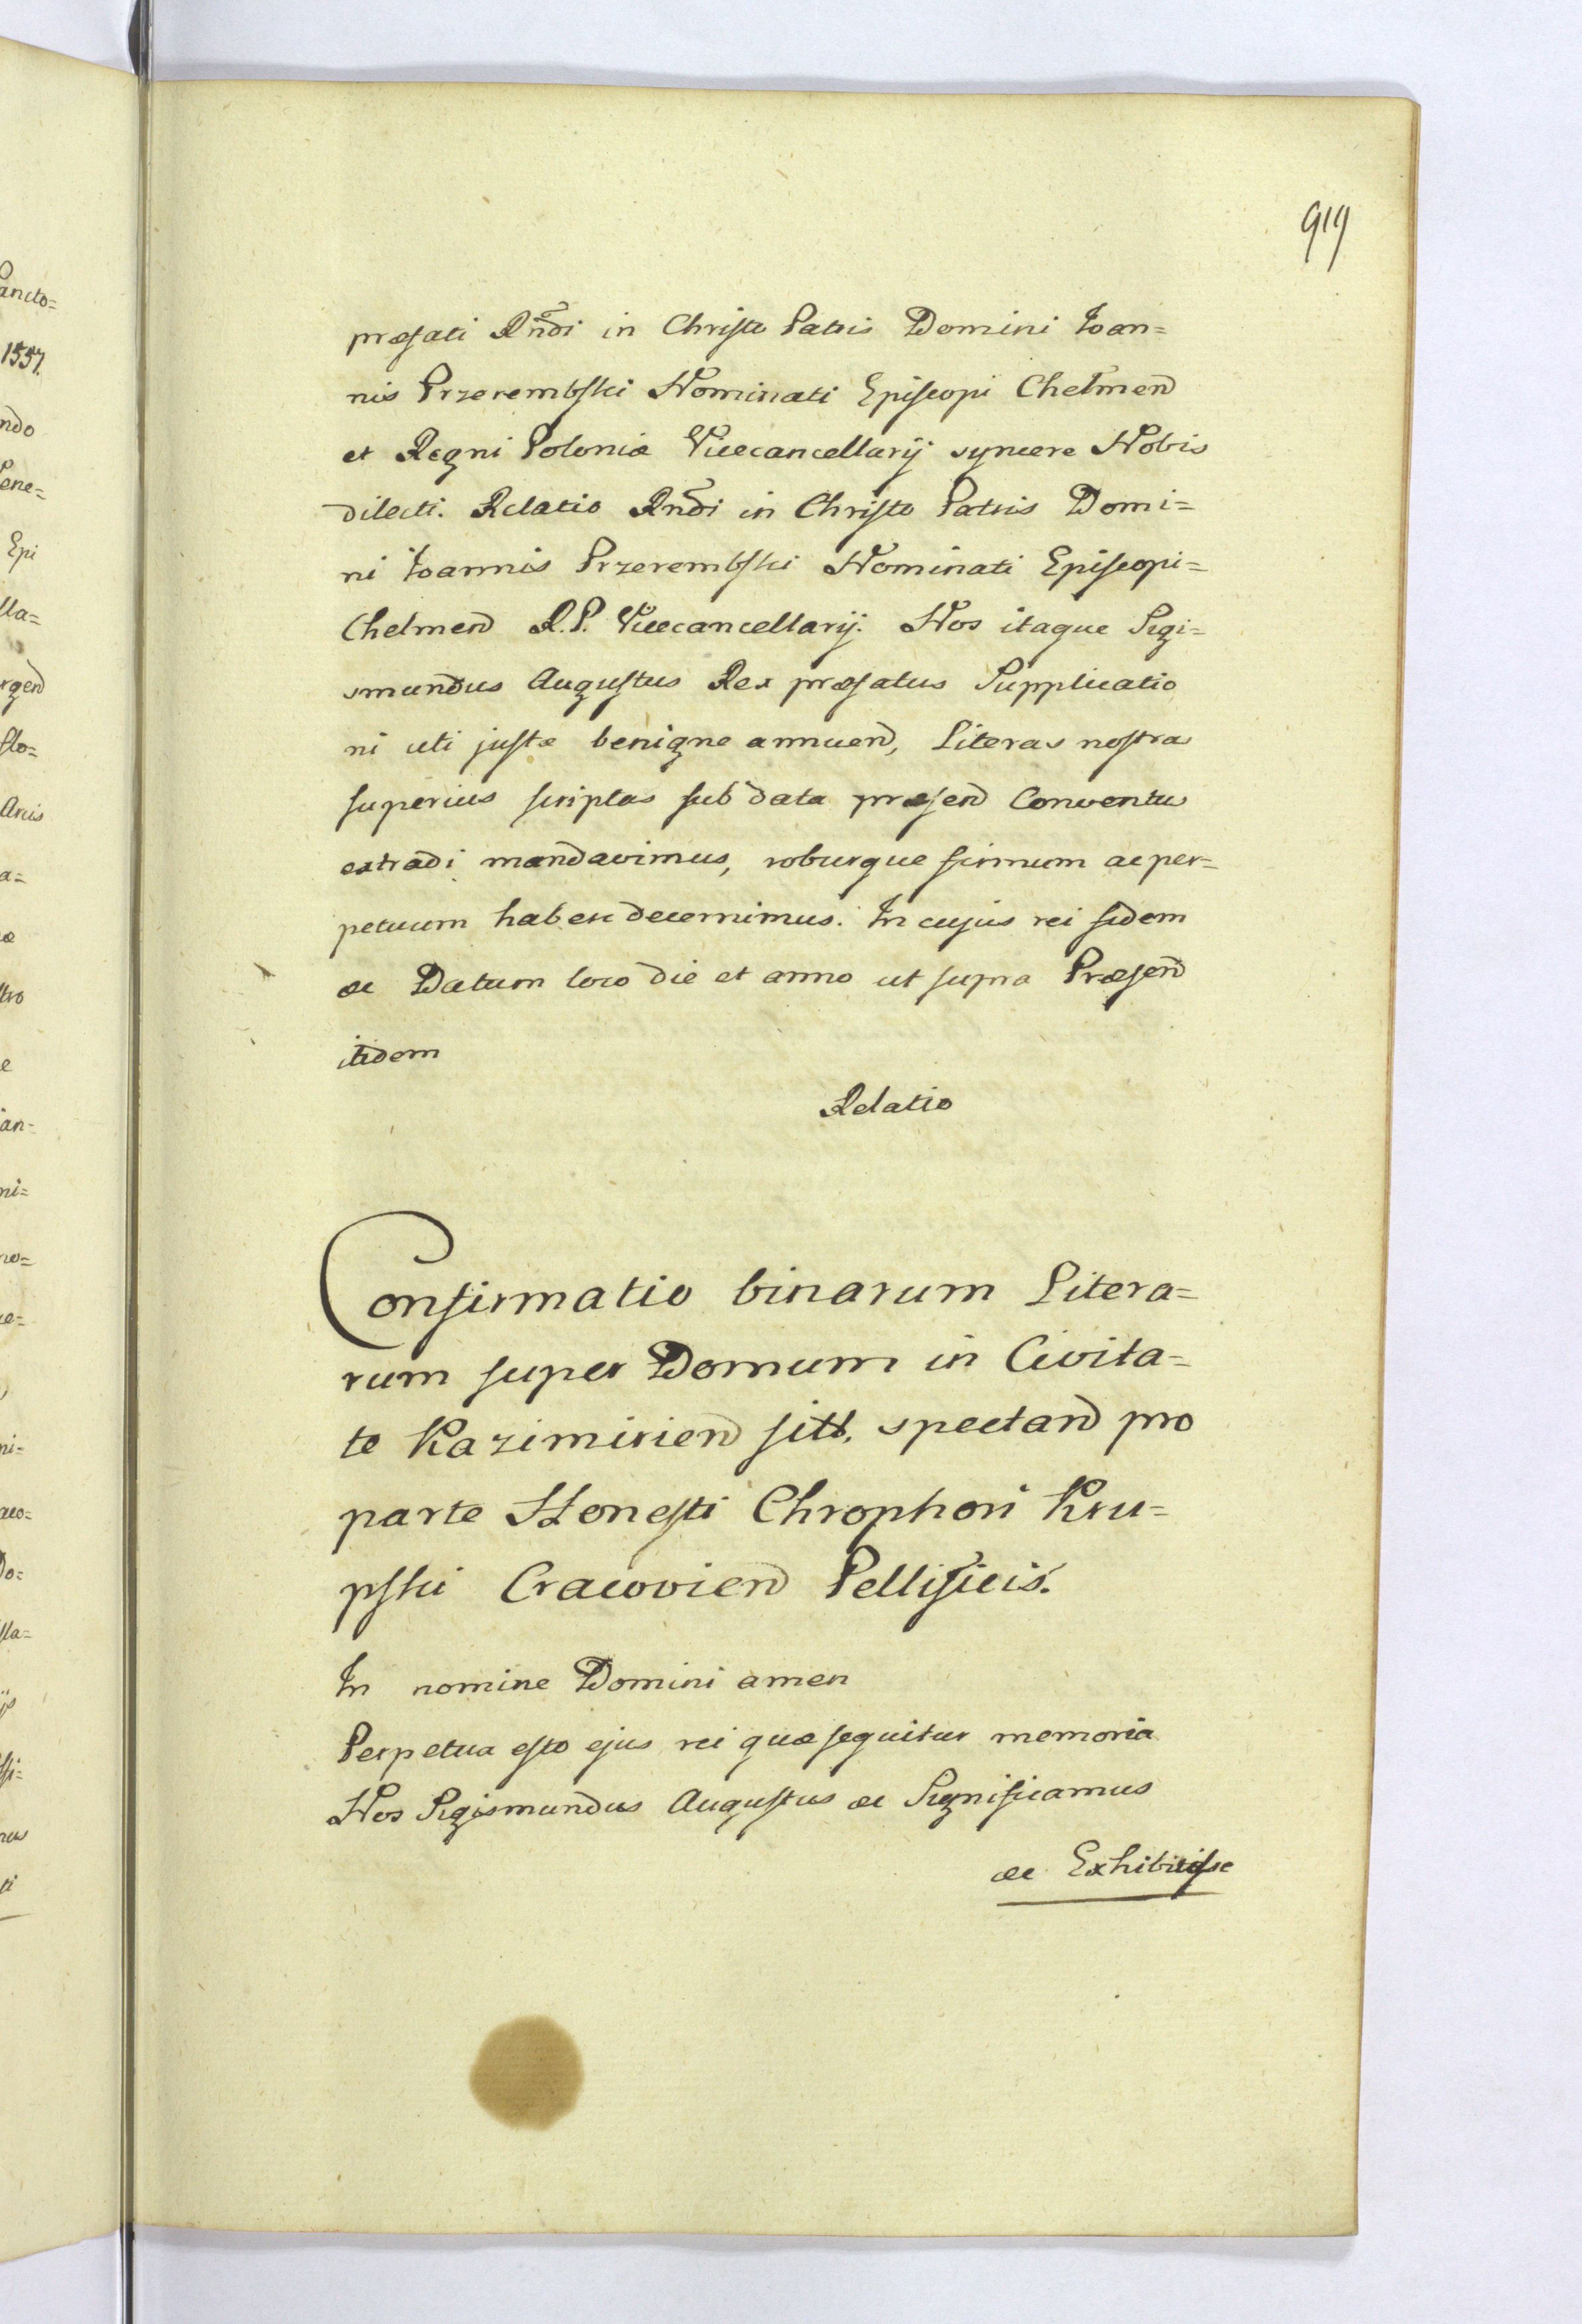 919
præfati Rndi in Christo Patris Domini Ioan=
nis Przerembski Nominati Episcopi Chelmen
et Regni Poloniæ Vicecancellarij syncere Nobis
dilecti. Relatio Rndi in Christo Patris Domi=
ni Ioannis Przerembski Nominati Episcopi=
Chelmen R.P. Vicecancellarij. Nos itaque Sigi=
smundus Augustus Rex præfatus Supplicatio
ni uti justæ benigne annuen, Literas nostras
superius scriptas sub data præsen Conventus
extradi mandavimus, roburque firmum ac per=
petuum habere decernimus. In cujus rei fidem
&c Datum loco die et anno ut supra Præsen
itidem
Relatio
Confirmatio binarum Litera=
rum super Domum in Civita=
te Kazimirien sitt. spectan pro
parte Honesti Chrophori Kru=
pski Cracovien Pellificis.
In nomine Domini amen
Perpetua esto ejus rei quæ sequitur memoria
Nos Sigismundus Augustus &c Significamus
&c Exhibuisse
ancto=
1557.
ndo
ene=
Epi
lla=
rgen
slo=
a=
æ
tro
e
ian=
ni=
no=
ni=
Do=
lla=